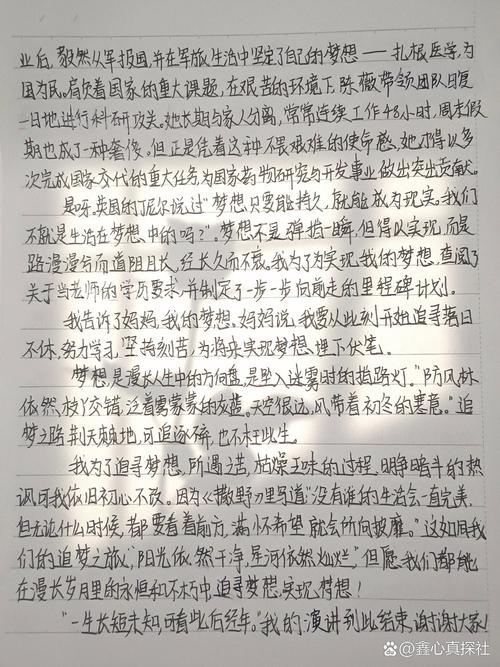 业后,毅然从军报国,并在军旅生活中坚定了自己的梦想——扎根医学,为
国为民。肩负着国家的重大课题,在艰苦的环境下,陈薇带领团队日复
一日地进行科研攻关。她长期与家人分离,常常连续工作48小时,周末假
期也成了一种奢侈。但正是凭着这种不畏艰难的使命感,她才得以多
次完成国家交代的重大任务,为国家药物研究与开发事业做出突出贡献。
是呀。英国的丁尼尔说过"梦想只要能持久,就能成为现实。我们
不就是生活在梦想中的吗?"。梦想不是弹指一瞬,但得以实现,而是
路漫漫兮而道阻且长,经长久而不衰。我为了为实现我的梦想,查阅了
关于当老师的学历要求,并制定了一步一步向前走的里程碑计划。
我告诉了妈妈,我的梦想。妈妈说,我要从此刻开始追寻落日
不休,努力学习,坚持刻苦,为将来实现梦想,埋下伏笔。
梦想,是漫长人生中的方向盘,是坠入迷雾时的指路灯。"防风林
依然,枝丫交错,泛着雾蒙蒙的灰蓝。天空很远,风带着初冬的寒意。"追
梦之路荆天棘地,可追逐碎,也不枉此生。
我为了追寻梦想,所遇之苦,枯燥乏味的过程,明争暗斗的热
讽,可我依旧初心不改。因为《撒野》里写道"没有谁的生活会一直完美,
但无论什么时候,都要看着前方,满怀希望就会所向披靡。"这如同我
们的追梦之旅,"阳光依然干净,星河依然灿烂。"但愿我们都能
在漫长岁月里的永恒和不朽中,追寻梦想,实现梦想!
"一生长短未知,可看此后经年。"我的演讲到此结束,谢谢大家!
@鑫心真探社